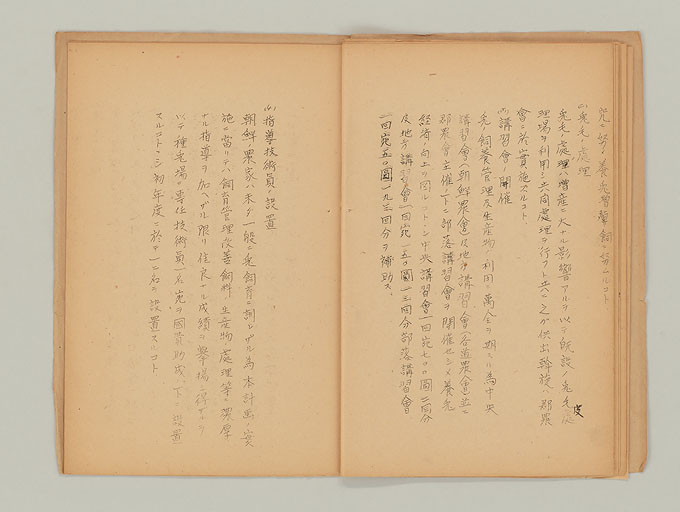 究ニ努メ養兎奨撃飼ニ努ムルコト
(ハ)兎毛ノ處理
兎毛ノ處理ハ増産ニ大ナル影響アルヲ以テ既設ノ兎毛皮處
理場ヲ利用シ共同處理ヲ行フト共ニ之ガ供出斡旋ハ郡農
會ニ於テ實施スルコト、
(ニ)講習會ノ開催
兎ノ飼養管理及生産物ノ利用ニ萬全ヲ期スル為中央
講習會(朝鮮農會)及地方講習會(各道農會)並ニ
郡農會主催ノ下ニ部落講習會ヲ開催セシメ養兎
経済ノ向上ヲ圖ルコトヽシ中央講習會一回宛七〇〇圓二回分
及地方講習會一回宛一五〇圓一三回分部落講習會
一回宛五〇圓一九三回分ヲ補助ス、
(ホ)指導技術員ノ設置
朝鮮ノ農家ハ未ダ一般ニ兎飼育ニ馴レザル為本計画ノ実
施ニ當リテハ飼育管理改善飼料、生産物處理等ニ濃厚
ナル指導ヲ加ヘザル限リ住良ナル成績ヲ擧揚シ得ザルヲ
以テ種兎場ニ専任技術員一名宛ヲ國費助成ノ下ニ設置
スルコトヽシ初年度ニ於テ一三名ヲ設置スルコト